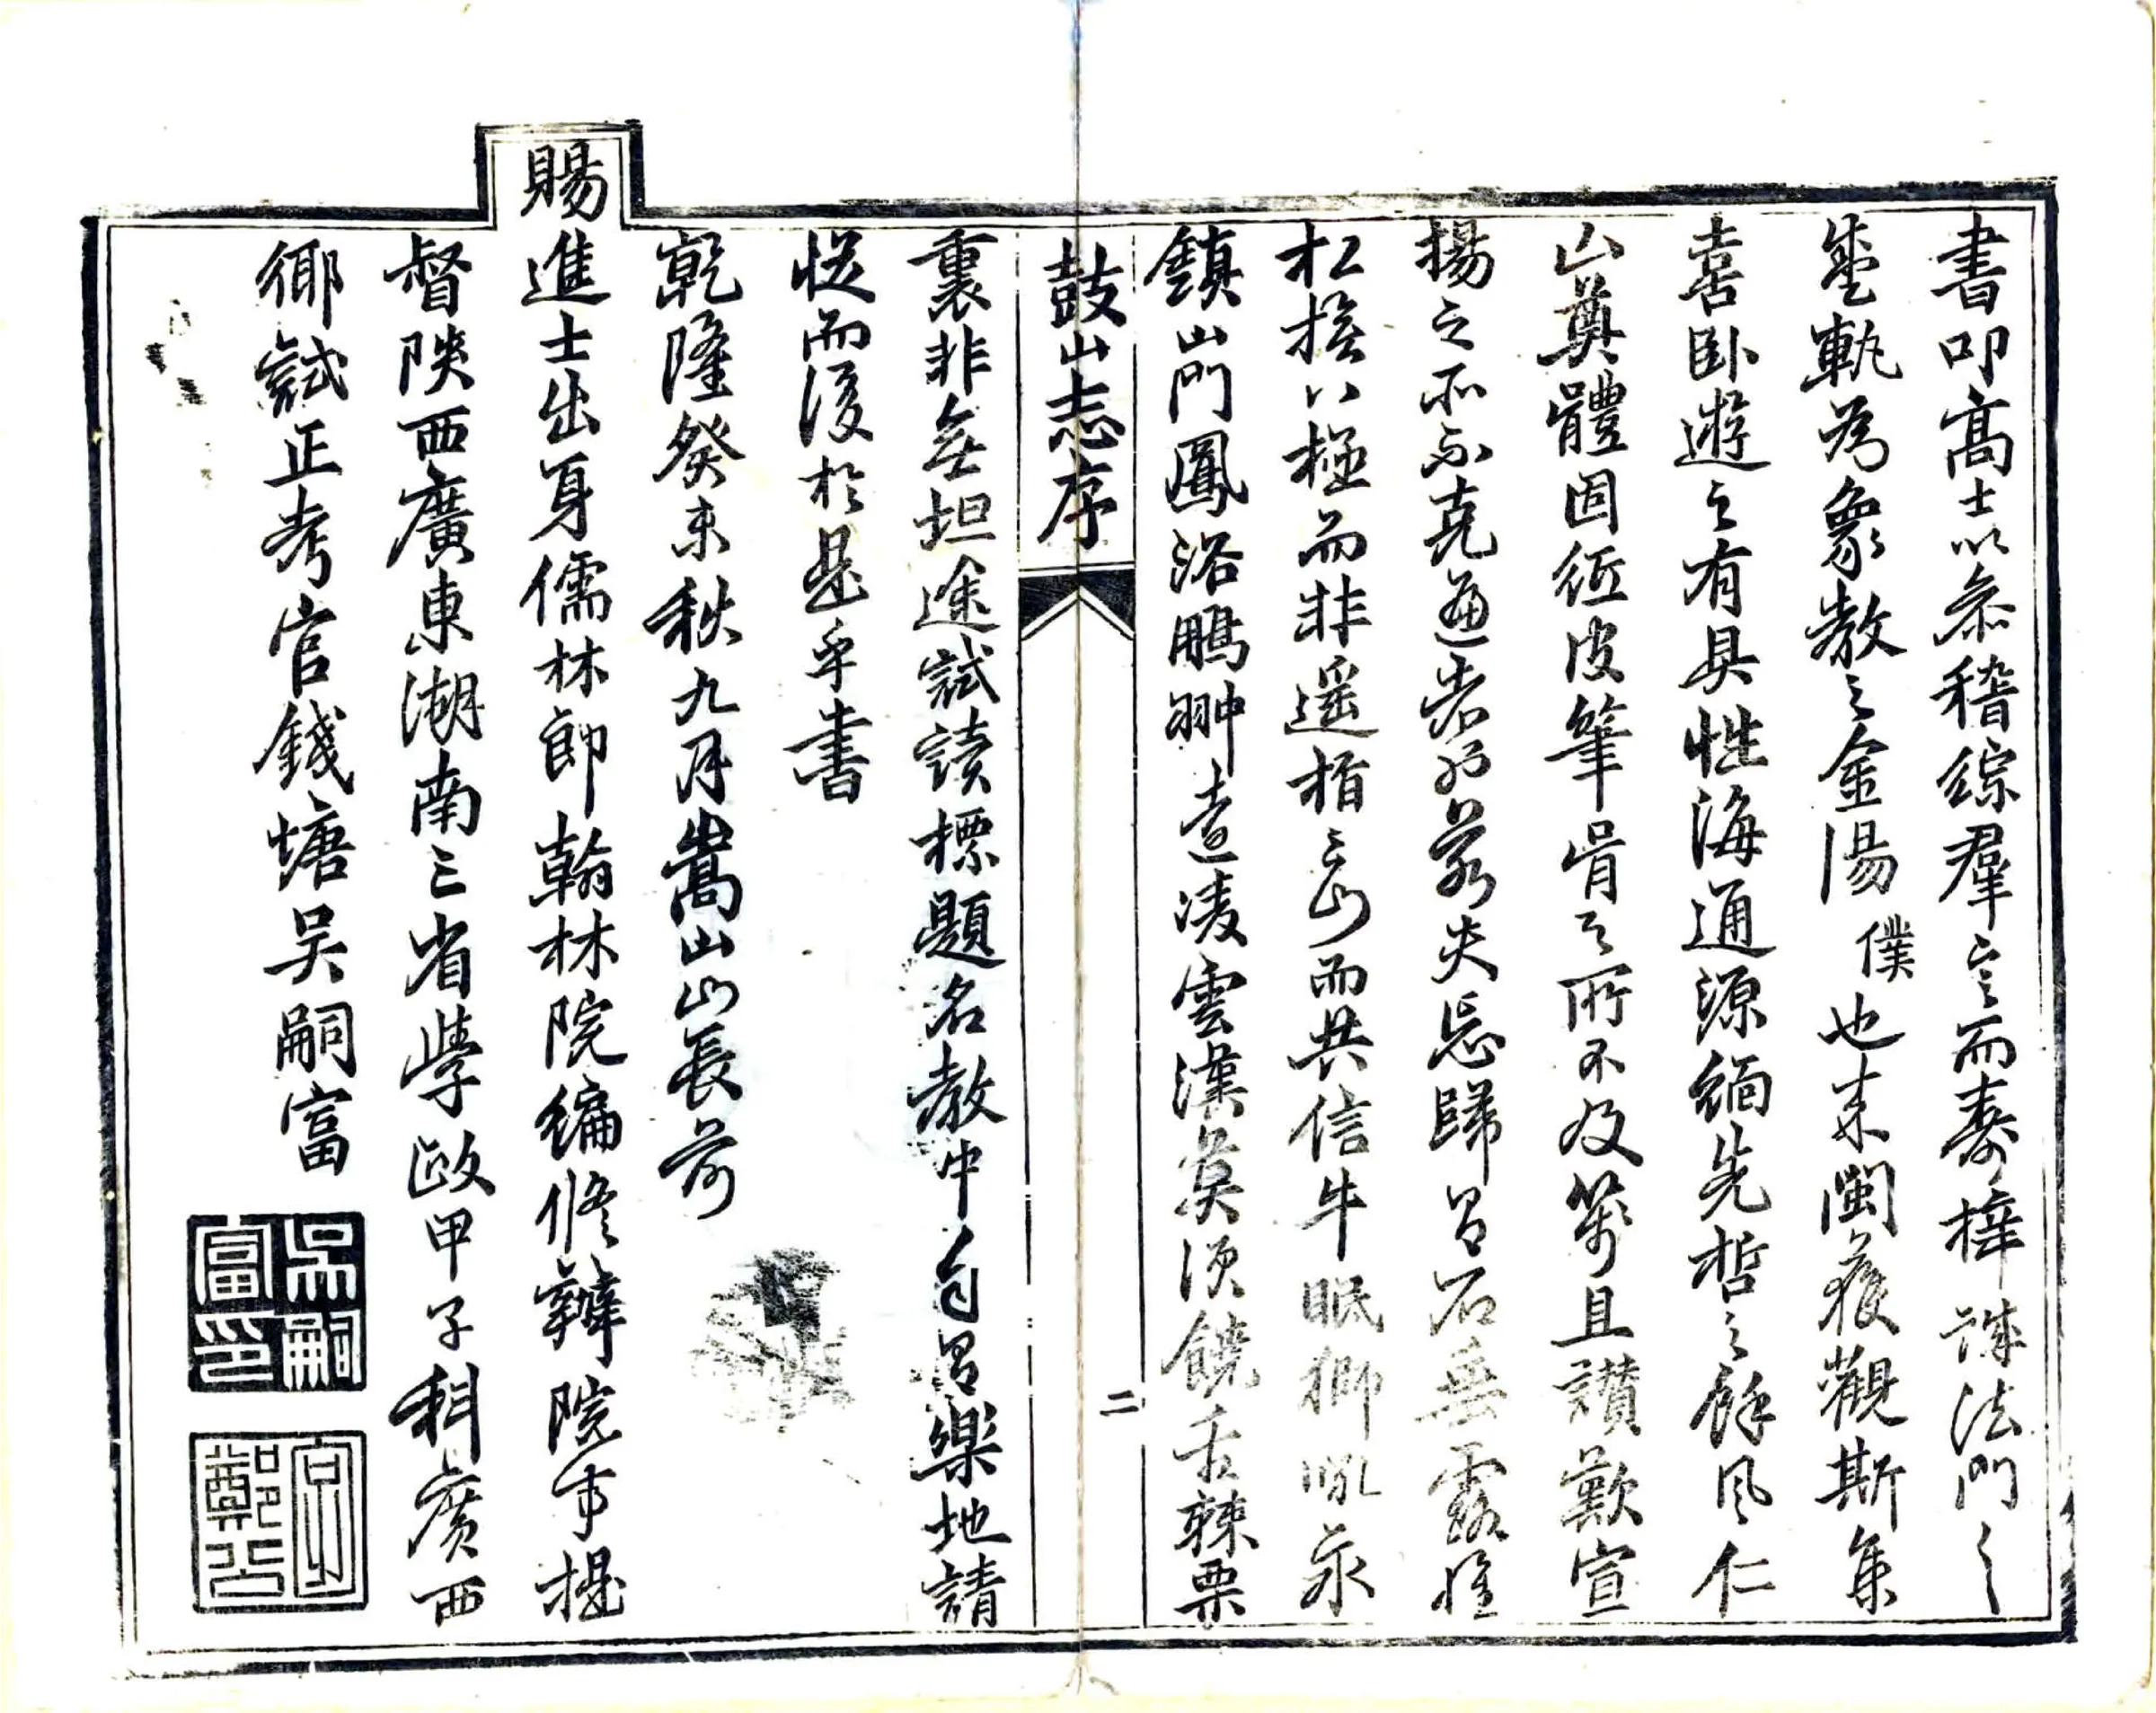 書叩高士以忝稽綜羣言而壽梓誠法門之
盛軌為象教之金湯僕也来閩獲觀斯集
喜卧遊之有具性海通源緬先哲之餘風仁
山奠體固徑皮筆骨之所不及籌且讚歎宣
揚之而不克遍者歟若夫忘歸
石無露惟
松撐八極而非遥指三山而共信牛眠獅吼永
鎮山門鳳浴鵬翀凌雲漢莫須饒舌棘栗
鼓山志序
二
裏非無坦途試讀標題名教中自有樂地請
從而後於是乎書
乾隆癸未秋九月嵩山山長前
賜進士出身儒林郎翰林院編修辦院事提
督陝西廣東湖南三省學政甲子科廣西
鄉試正考官錢塘吴嗣富
吳嗣富印
字鄭公